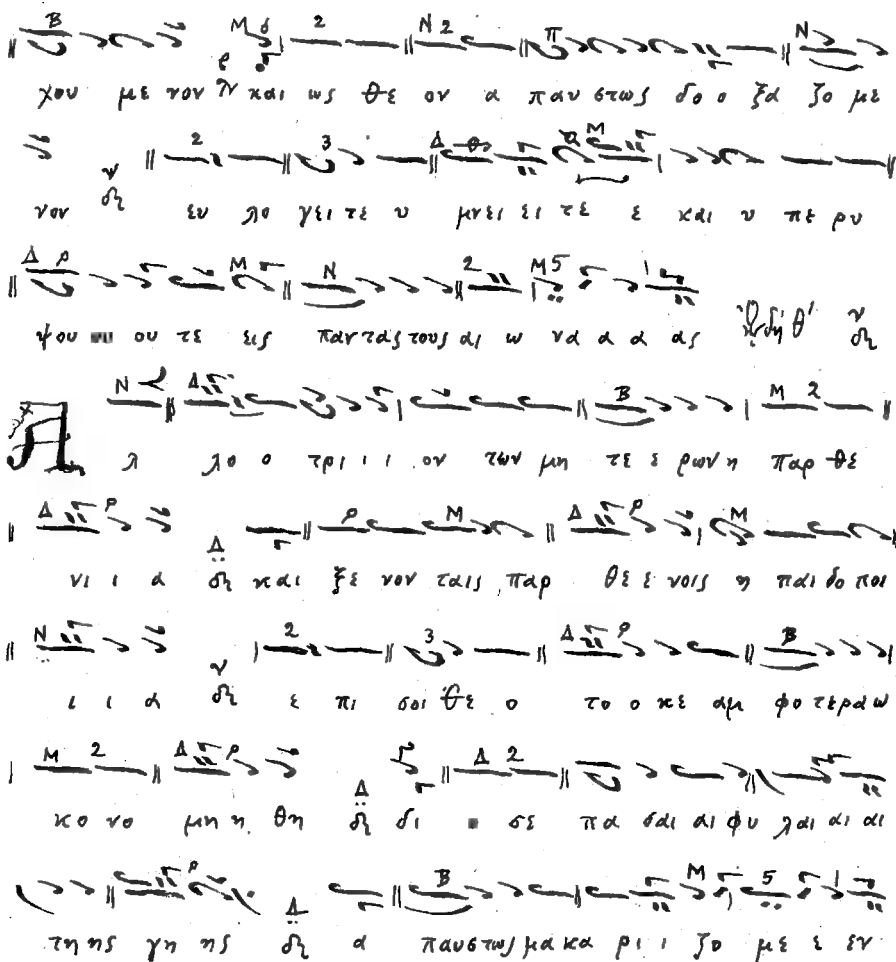 χου με νον και ως θε ον α παυ στως δο ο ξα ζο με
νον ευ λο γει τε υ μνει ει τε ε και υ πε ρυ
ψου ου τε εις παντας τους αι ω να α α ας ᾠδή θ'
λ λο ο τρι ι ι ον των μη τε ε ρων η παρ θε
νι ι α και ξε νον ταις παρ θε ε νοις η παι δο ποι
ι ι α ε πι σοι θε ο το ο κε αμ φο τερα ω
κο νο μη η θη δι ο σε πα σαι αι φυ λαι αι αι
τη ης γη ης α παυστως μα κα ρι ι ζο με ε εν